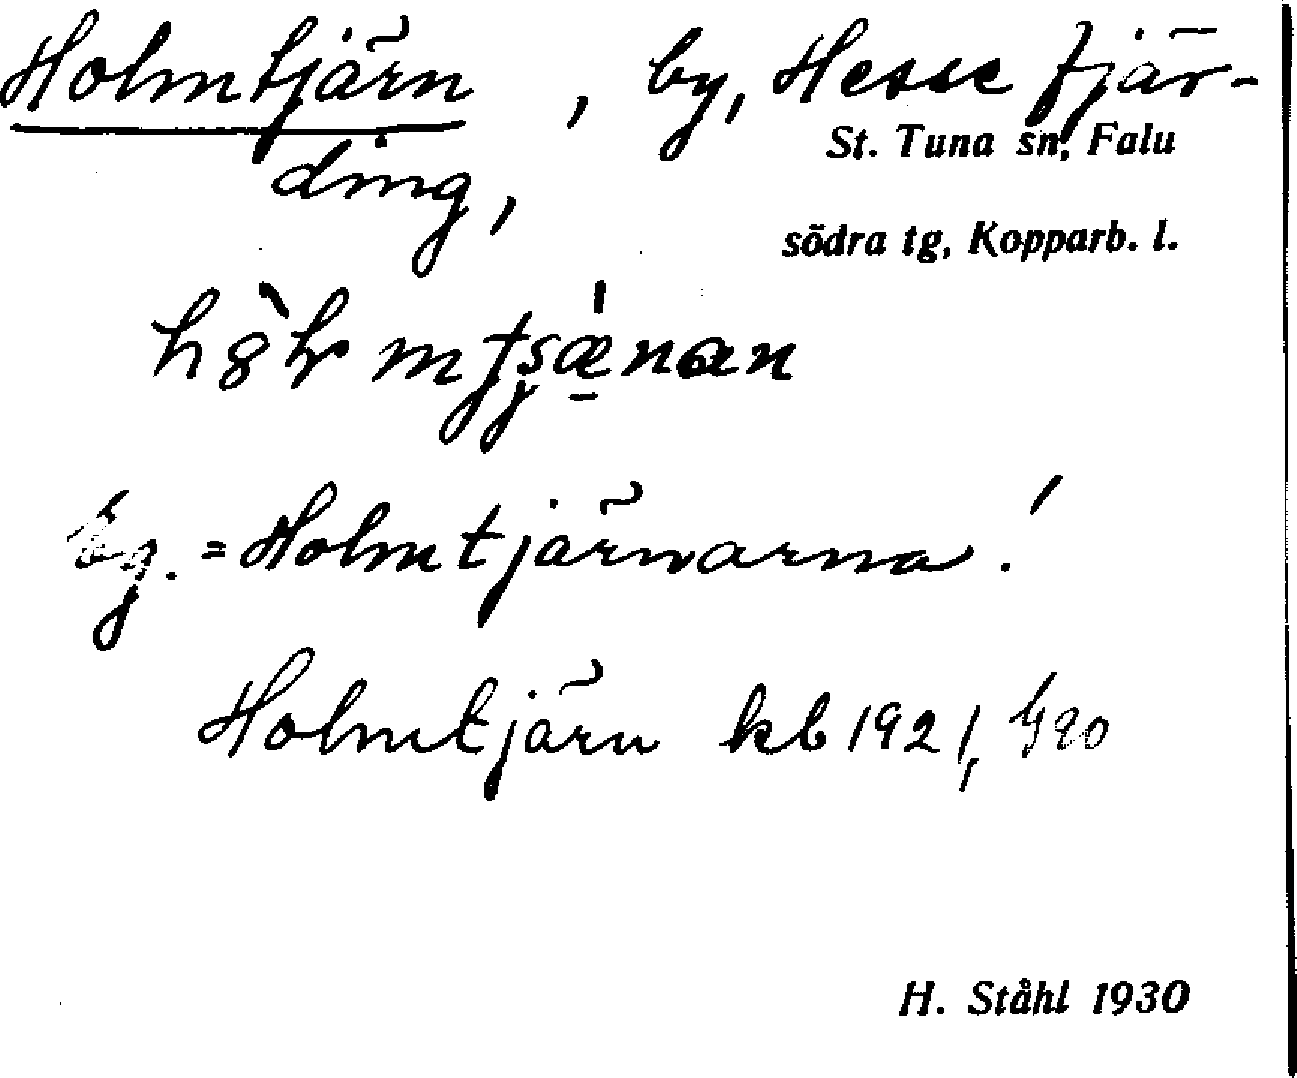 Holmtjärn, by, Hesse fjär-
ding,
St. Tuna sn, Falu
södra tg, Kopparb. l.
Eg. = Holmtjärnarna!
Holmtjärn kb 1921,
H. Ståhl 1930